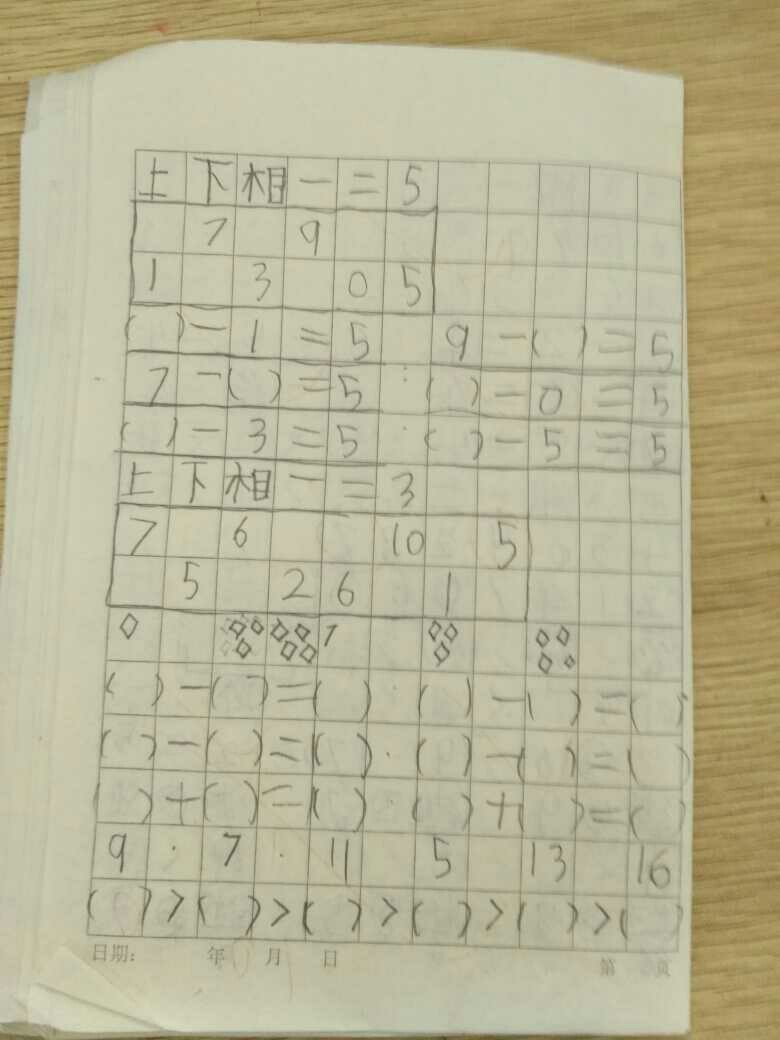 上下相一=5
7 9
1 3 0 5
( )-1=5 9-( )=5
7-( )=5 ( )-0=5
( )-3=5 ( )-5=5
上下相一=3
7 6 10 5
5 2 6 1
( )-( )=( ) ( )-( )=( )
( )-( )=( ) ( )-( )=( )
( )+( )=( ) ( )+( )=( )
9 · 7 · 11 5 13 16
( )>( )>( )>( )>( )>( )
日期: 年 月 日 第 页